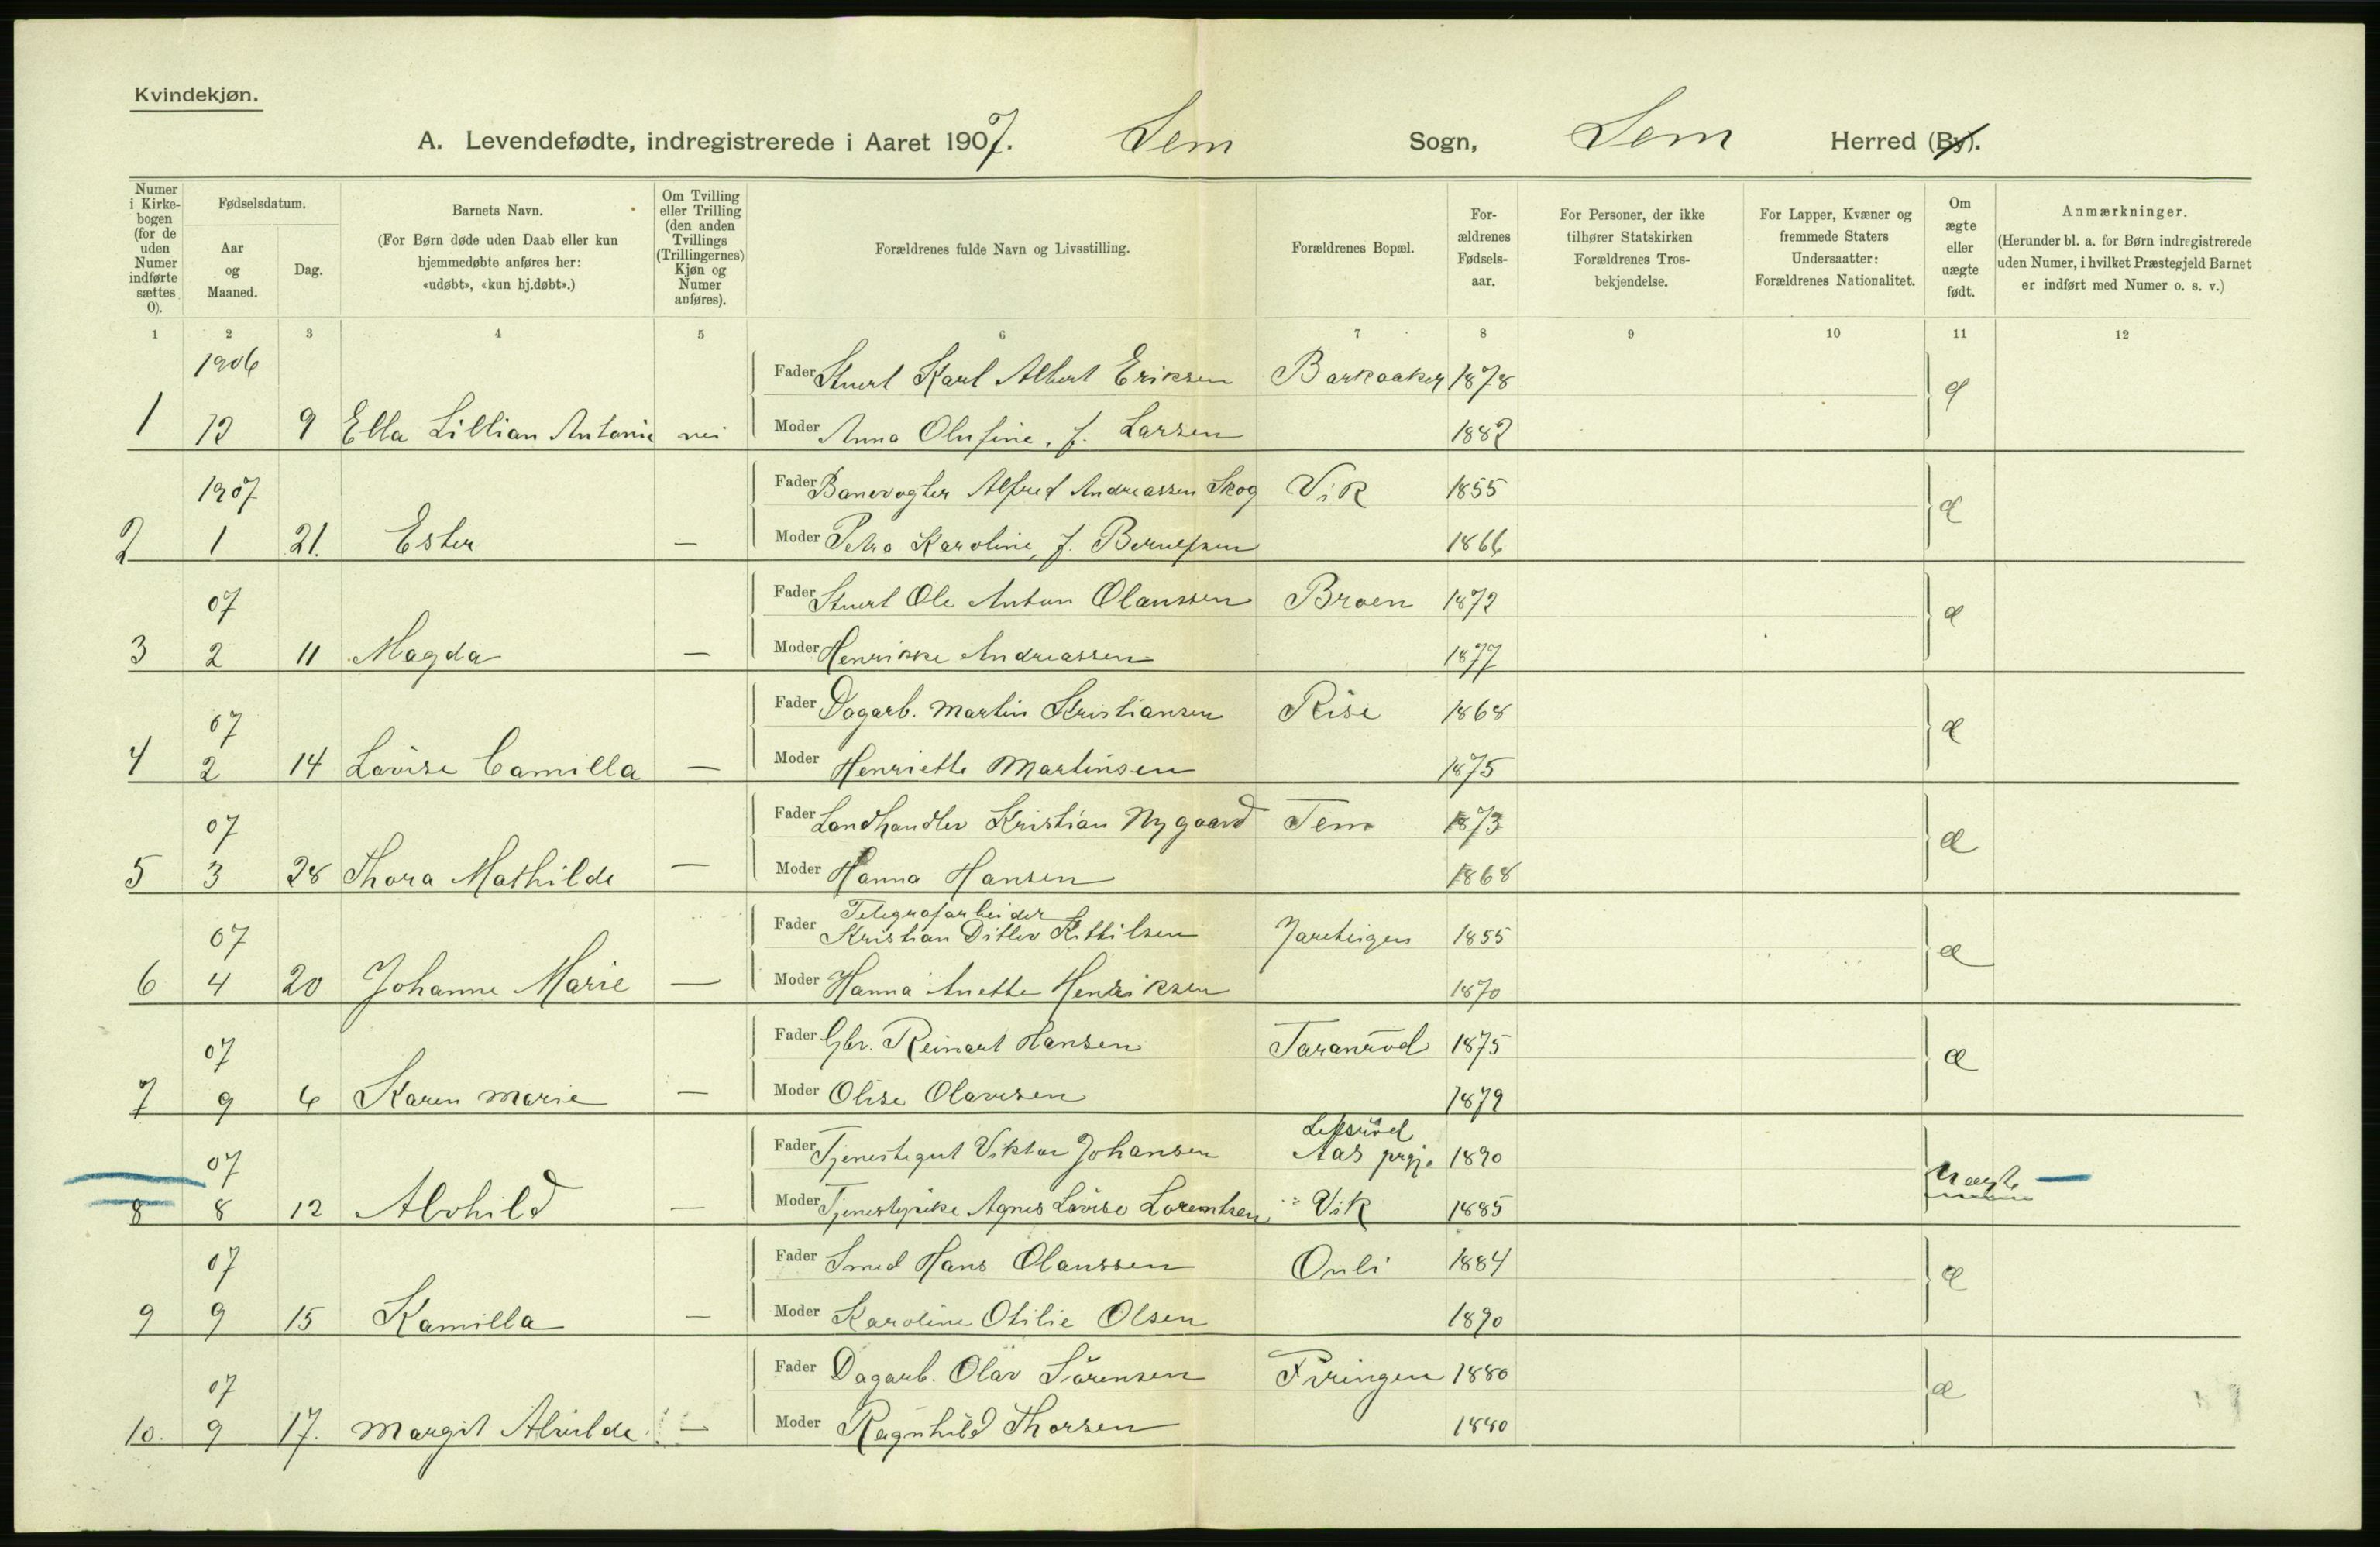 Kvindekjøn.
A. Levendefødte, indregistrerede i Aaret 1907. Sem Sogn, Sem Herred (By).
Numer i Kirkebogen (for de uden Numer indførte sættes 0).
Fødselsdatum.
Aar og Maaned.
Dag.
Barnets Navn.
(For Børn døde uden Daab eller kun hjemmedøbte anføres her: «udøbt», «kun hj.døbt».)
Om Tvilling eller Trilling (den anden Tvillings (Trillingernes) Kjøn og Numer anføres).
Forældrenes fulde Navn og Livsstilling.
Forældrenes Bopæl.
Forældrenes Fødselsaar.
For Personer, der ikke tilhører Statskirken Forældrenes Trosbekjendelse.
For Lapper, Kvæner og fremmede Staters Undersaatter: Forældrenes Nationalitet.
Om ægte eller uægte født.
Anmærkninger.
(Herunder bl. a. for Børn indregistrerede uden Numer, i hvilket Præstegjeld Barnet er indført med Numer o. s. v.)
1 2 3 4 5 6 7 8 9 10 11 12
1906
Fader Stuert Karl Albert Eriksen Barkaaker 1878 æ
1 12 9 Ella Lillian Antonie nei Moder Anna Olufine, f. Larsen 1882
1907
Fader Banevogter Alfred Andreassen Skog Vik 1855 æ
2 1 21. Ester — Moder Petra Karoline, f. Berntsen 1866
07
Fader Stuert Ole Anton Olaussen Broen 1872 æ
3 2 11 Magda — Moder Henrikke Andreassen 1877
07
Fader Dagarb. Martin Kristiansen Rise 1868 æ
4 2 14 Lovise Camilla — Moder Henriette Martinsen 1875
07
Fader Landhandler Kristian Nygaard Tem 1873 æ
5 3 28 Thora Mathilde — Moder Hanna Hansen 1868
07
Telegrafarbeider
Fader Kristian Ditlev Kittilsen Jareteigen 1855 æ
6 4 20 Johanne Marie — Moder Hanna Anette Henriksen 1870
07
Fader Gbr. Reinart Hansen Taranrød 1875 æ
7 9 6 Karen Marie — Moder Olise Olavesen 1879
07
Fader Tjenestegut Viktor Johansen Aas prgj. 1890 Uægte —
8 8 12 Alvhild — Moder Tjenestepike Agnes Lovise Lorentsen Vik 1885
07
Fader Smed Hans Olaussen Onli 1884 æ
9 9 15 Kamilla — Moder Karoline Otilie Olsen 1890
07
Fader Dagarb. Olav Sørensen Firingen 1880 æ
10. 9 17. Margit Alvilde — Moder Ragnhild Thorsen 1880